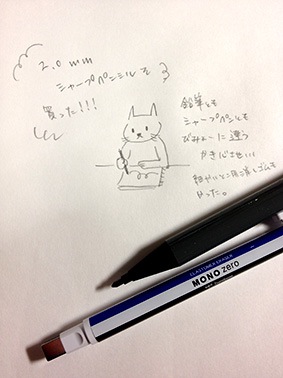 2.0mm
シャープペンシルを
買った!!!
鉛筆とも
シャープペンとも
びみょーに違う
かきごこ地いい
細かいとこ用に消しゴムも
やった。
ELASTOMER ERASER
MONO zero